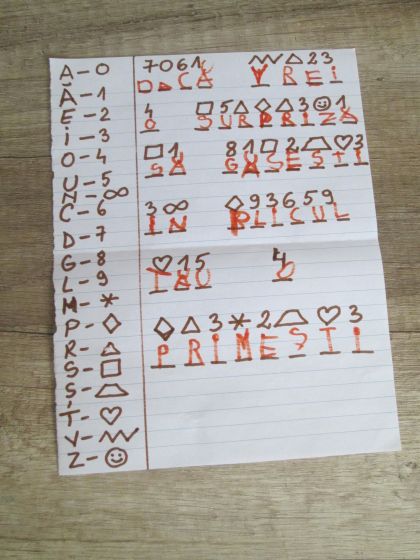 A - 0
Ă - 1
E - 2
İ - 3
O - 4
U - 5
N - ∞
C - 6
D - 7
G - 8
L - 9
M - *
P - ◇
R - △
S - □
Ș - ⏢
T - ♡
V - 〰
Z - ☺
7061 〰△23
DACĂ VREİ
4 □5△◇△3☺1
O SURPRİZĂ
□1 81□2⏢♡3
SĂ GĂSEȘTİ
3∞ ◇93659
İN PLİCUL
♡15 4
TĂU O
◇△3*2⏢♡3
PRİMEȘTİ